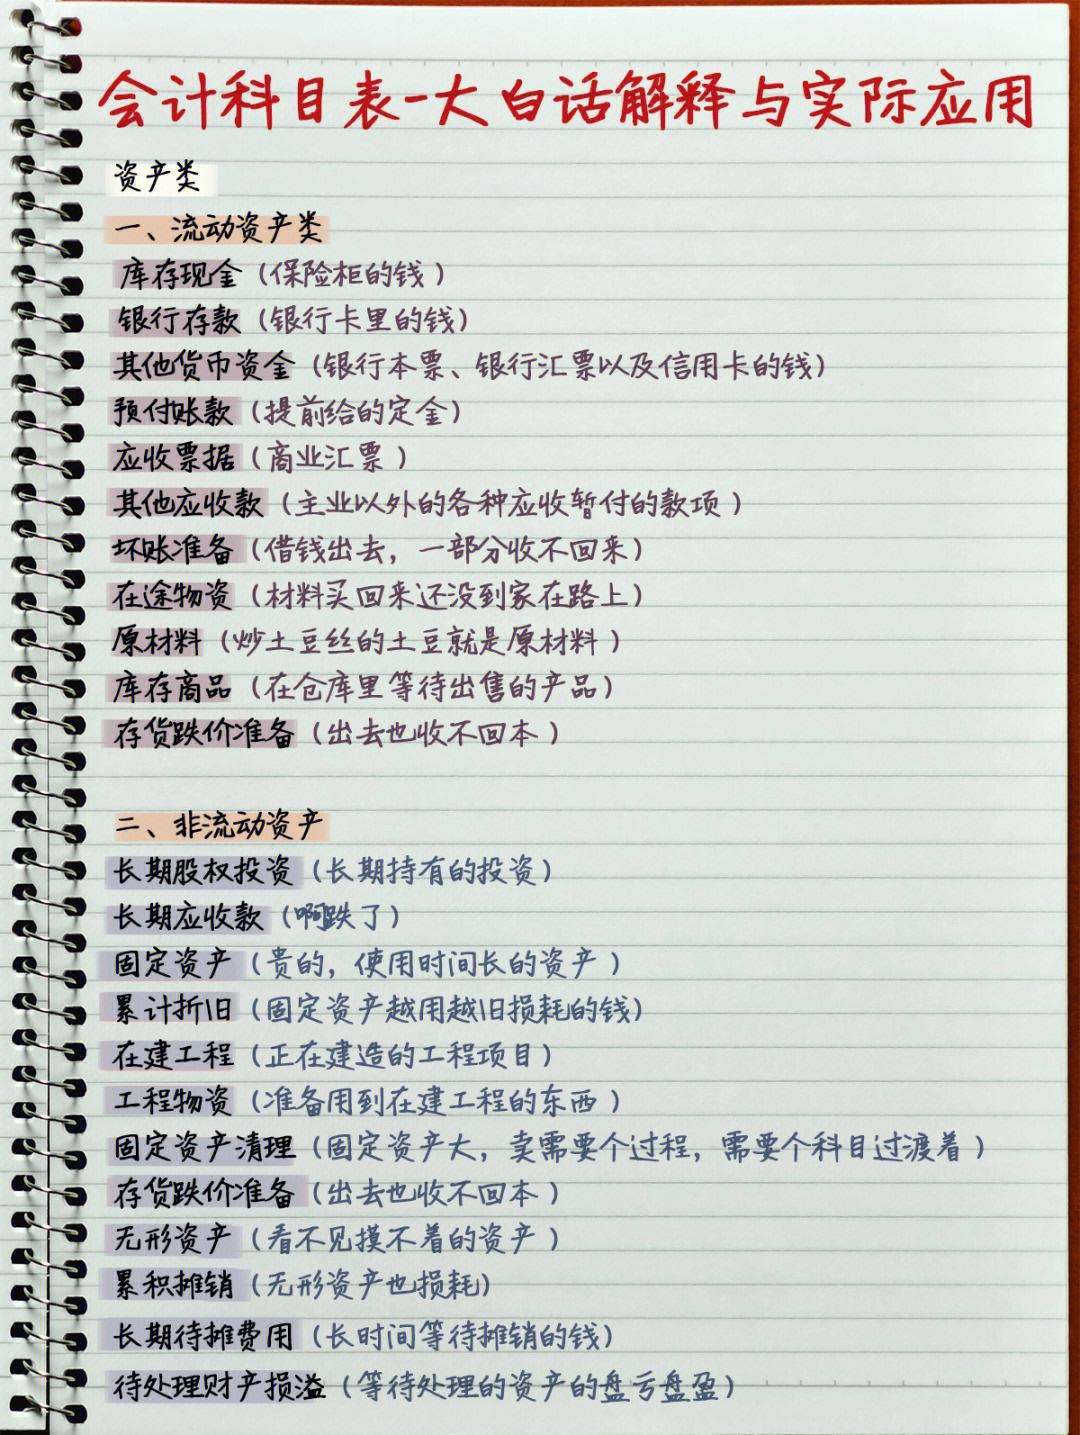 会计科目表-大白话解释与实际应用
资产类
一、流动资产类
库存现金（保险柜的钱）
银行存款（银行卡里的钱）
其他货币资金（银行本票、银行汇票以及信用卡的钱）
预付账款（提前给的定金）
应收票据（商业汇票）
其他应收款（主业以外的各种应收暂付的款项）
坏账准备（借钱出去，一部分收不回来）
在途物资（材料买回来还没到家在路上）
原材料（炒土豆丝的土豆就是原材料）
库存商品（在仓库里等待出售的产品）
存货跌价准备（出去也收不回本）
二、非流动资产
长期股权投资（长期持有的投资）
长期应收款（啊跌了）
固定资产（贵的，使用时间长的资产）
累计折旧（固定资产越用越旧损耗的钱）
在建工程（正在建造的工程项目）
工程物资（准备用到在建工程的东西）
固定资产清理（固定资产大，卖需要个过程，需要个科目过渡着）
存货跌价准备（出去也收不回本）
无形资产（看不见摸不着的资产）
累积摊销（无形资产也损耗）
长期待摊费用（长时间等待摊销的钱）
待处理财产损溢（等待处理的资产的盘亏盘盈）